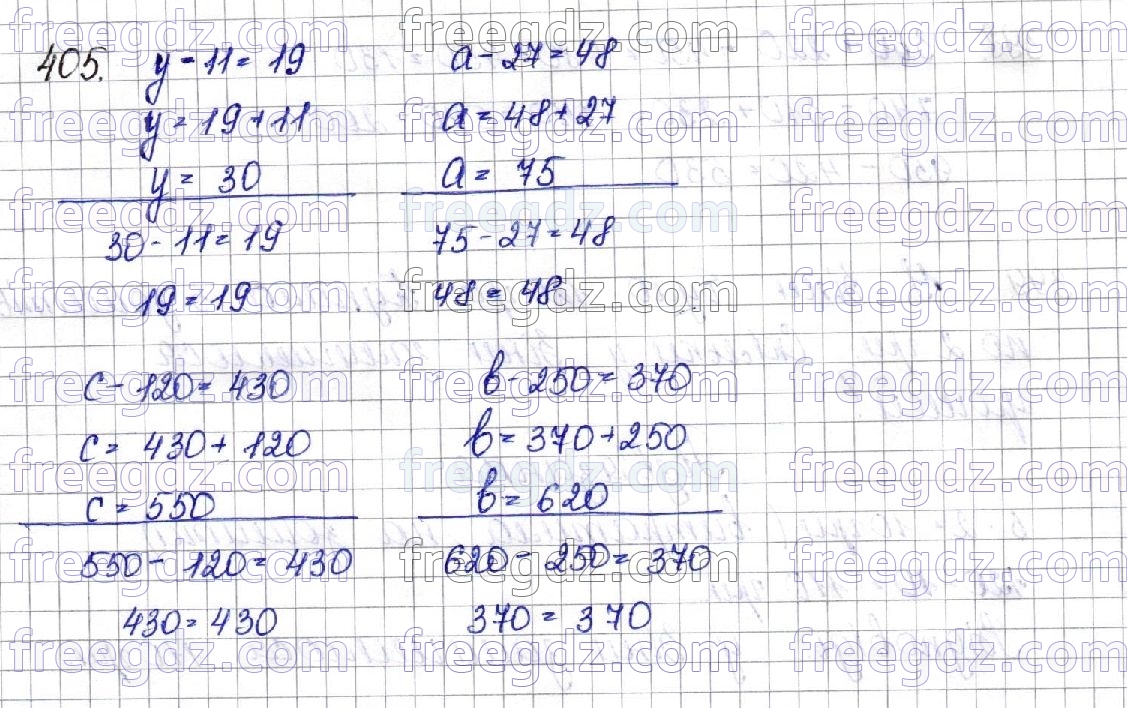 405. y - 11 = 19 a - 27 = 48
y = 19 + 11 a = 48 + 27
y = 30 a = 75
30 - 11 = 19 75 - 27 = 48
19 = 19 48 = 48
c - 120 = 430 b - 250 = 370
c = 430 + 120 b = 370 + 250
c = 550 b = 620
550 - 120 = 430 620 - 250 = 370
430 = 430 370 = 370
freegdz.com